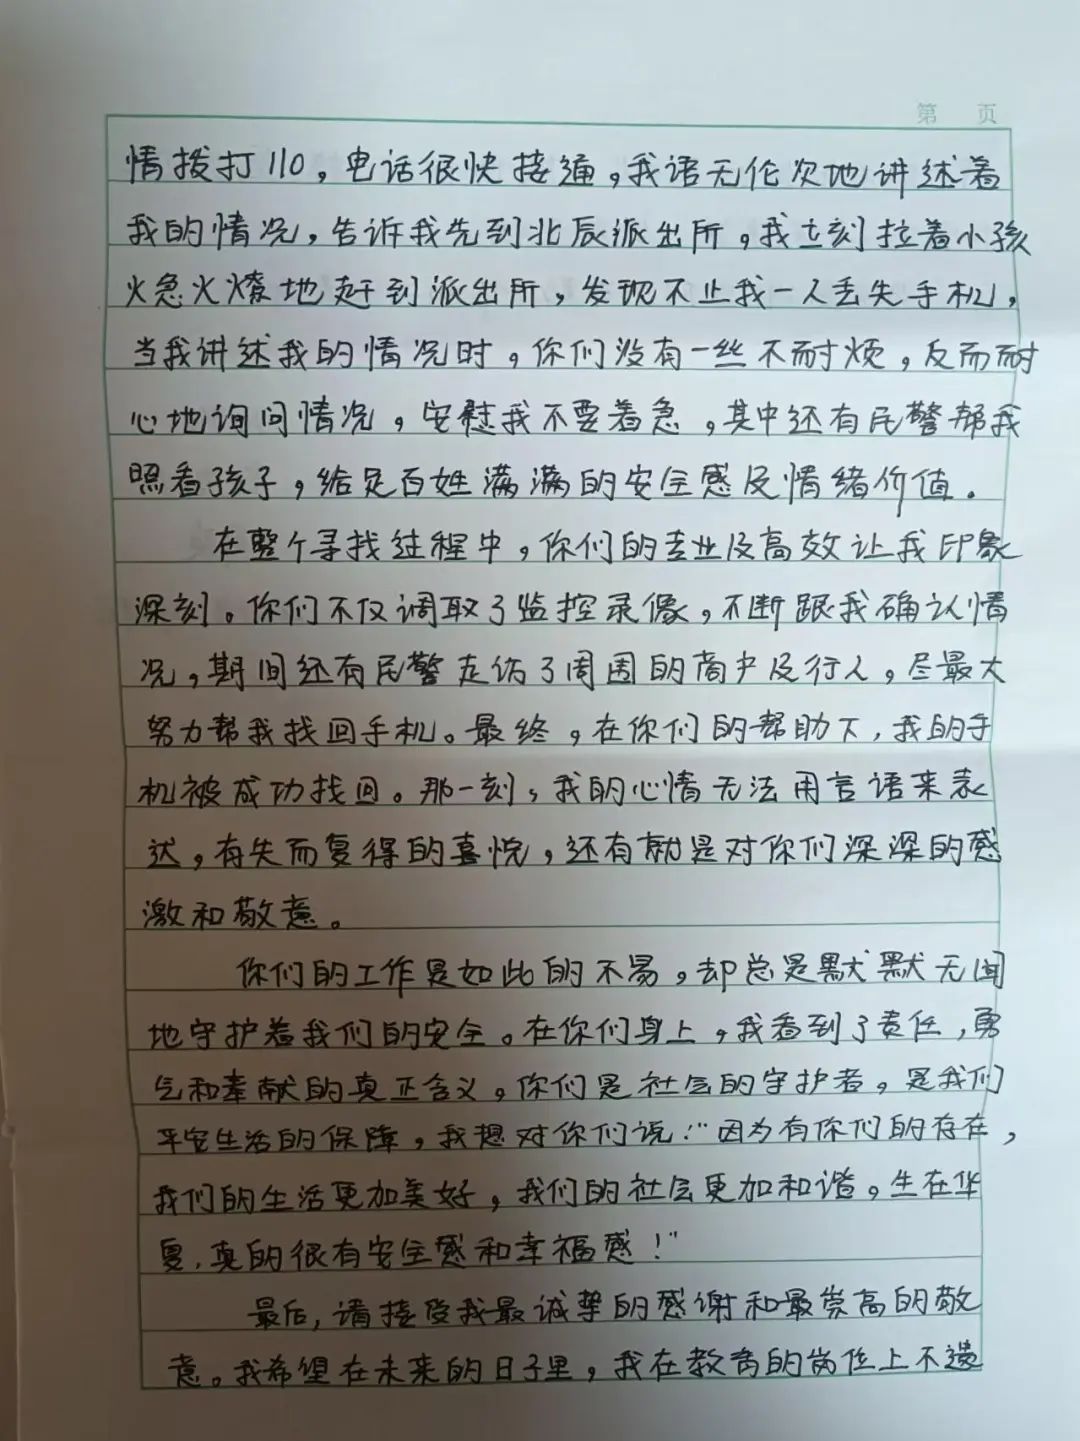 第 页
情拨打110，电话很快接通，我语无伦次地讲述着
我的情况，告诉我先到北辰派出所，我立刻拉着小孩
火急火燎地赶到派出所，发现不止我一人丢失手机，
当我讲述我的情况时，你们没有一丝不耐烦，反而耐
心地询问情况，安慰我不要着急，其中还有民警帮我
照看孩子，给足百姓满满的安全感及情绪价值。
在整个寻找过程中，你们的专业及高效让我印象
深刻。你们不仅调取了监控录像，不断跟我确认情
况，期间还有民警走访了周围的商户及行人，尽最大
努力帮我找回手机。最终，在你们的帮助下，我的手
机被成功找回。那一刻，我的心情无法用言语来表
达，有失而复得的喜悦，还有就是对你们深深的感
激和敬意。
你们的工作是如此的不易，却总是默默无闻
地守护着我们的安全。在你们身上，我看到了责任，勇
气和奉献的真正含义，你们是社会的守护者，是我们
平安生活的保障，我想对你们说："因为有你们的存在，
我们的生活更加美好，我们的社会更加和谐。生在华
夏，真的很有安全感和幸福感！"
最后，请接受我最诚挚的感谢和最崇高的敬
意。我希望在未来的日子里，我在教育的岗位上不遗